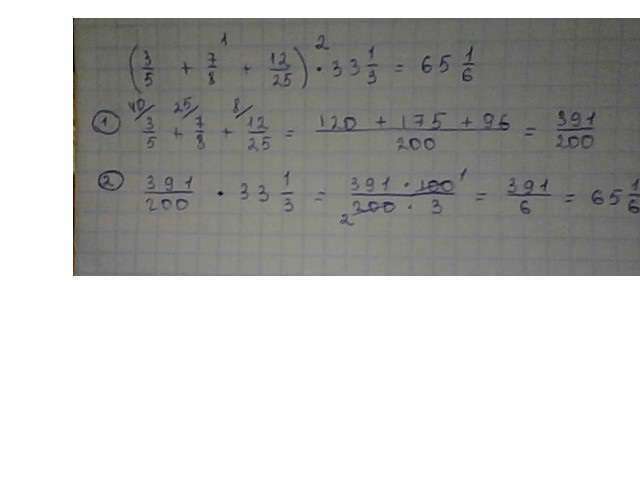 (3/5 + 7/8 + 12/25) · 33 1/3 = 65 1/6
1 3/5 + 7/8 + 12/25 = (120 + 175 + 96)/200 = 391/200
2 391/200 · 33 1/3 = (391 · 100)/(200 · 3) = 391/6 = 65 1/6